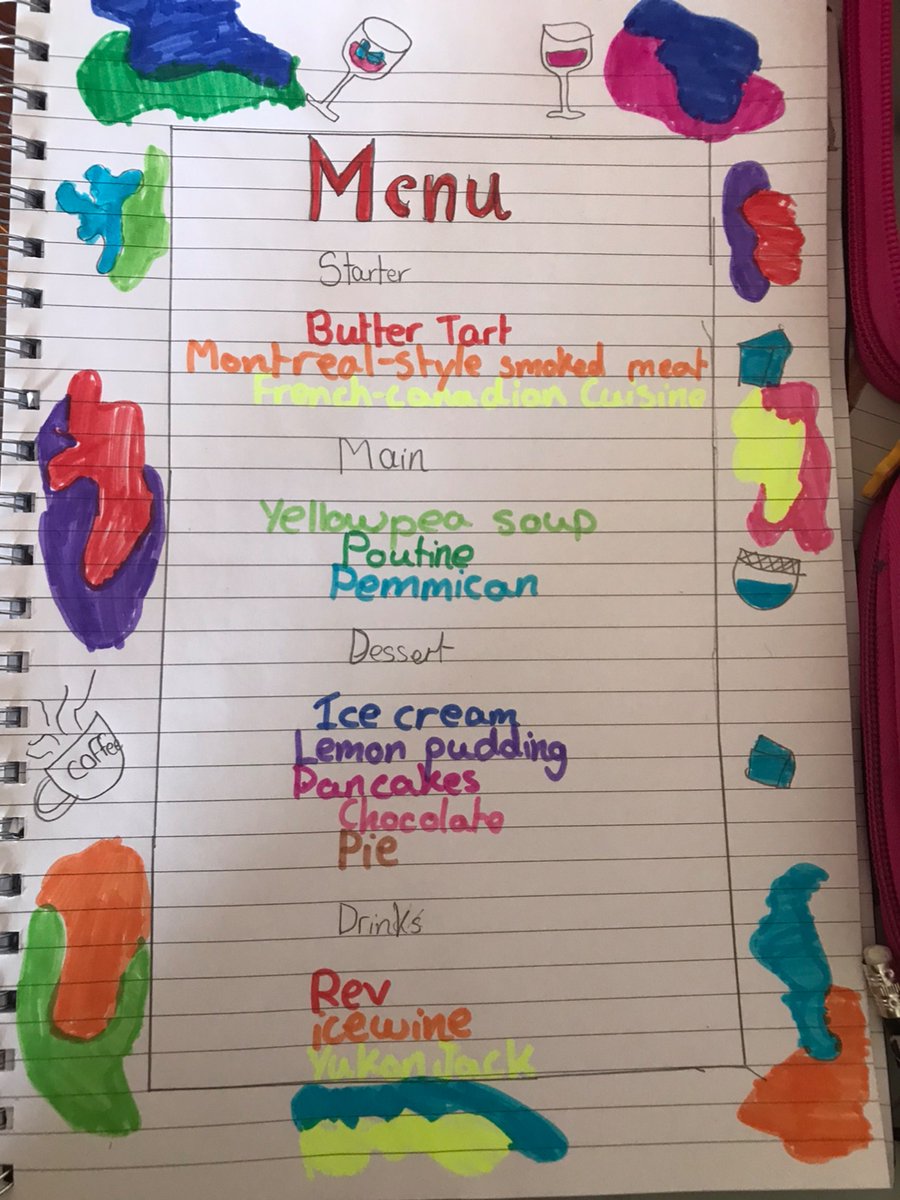 Menu
Starter
Butter Tart
Montreal-style smoked meat
French-canadian Cuisine
Main
Yellowpea soup
Poutine
Pemmican
Dessert
Ice cream
Lemon pudding
Pancakes
Chocolate
Pie
coffee
Drinks
Rev
icewine
Yukon Jack